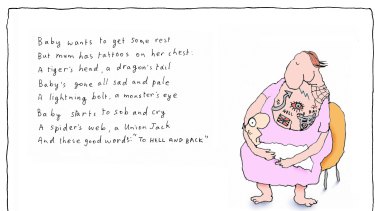 Baby wants to get some rest
But mum has tattoos on her chest:
A tiger's head, a dragon's tail
Baby's gone all sad and pale
A lightning bolt, a monster's eye
Baby starts to sob and cry
A spider's web, a Union Jack
And these good words: "TO HELL AND BACK"
HELL